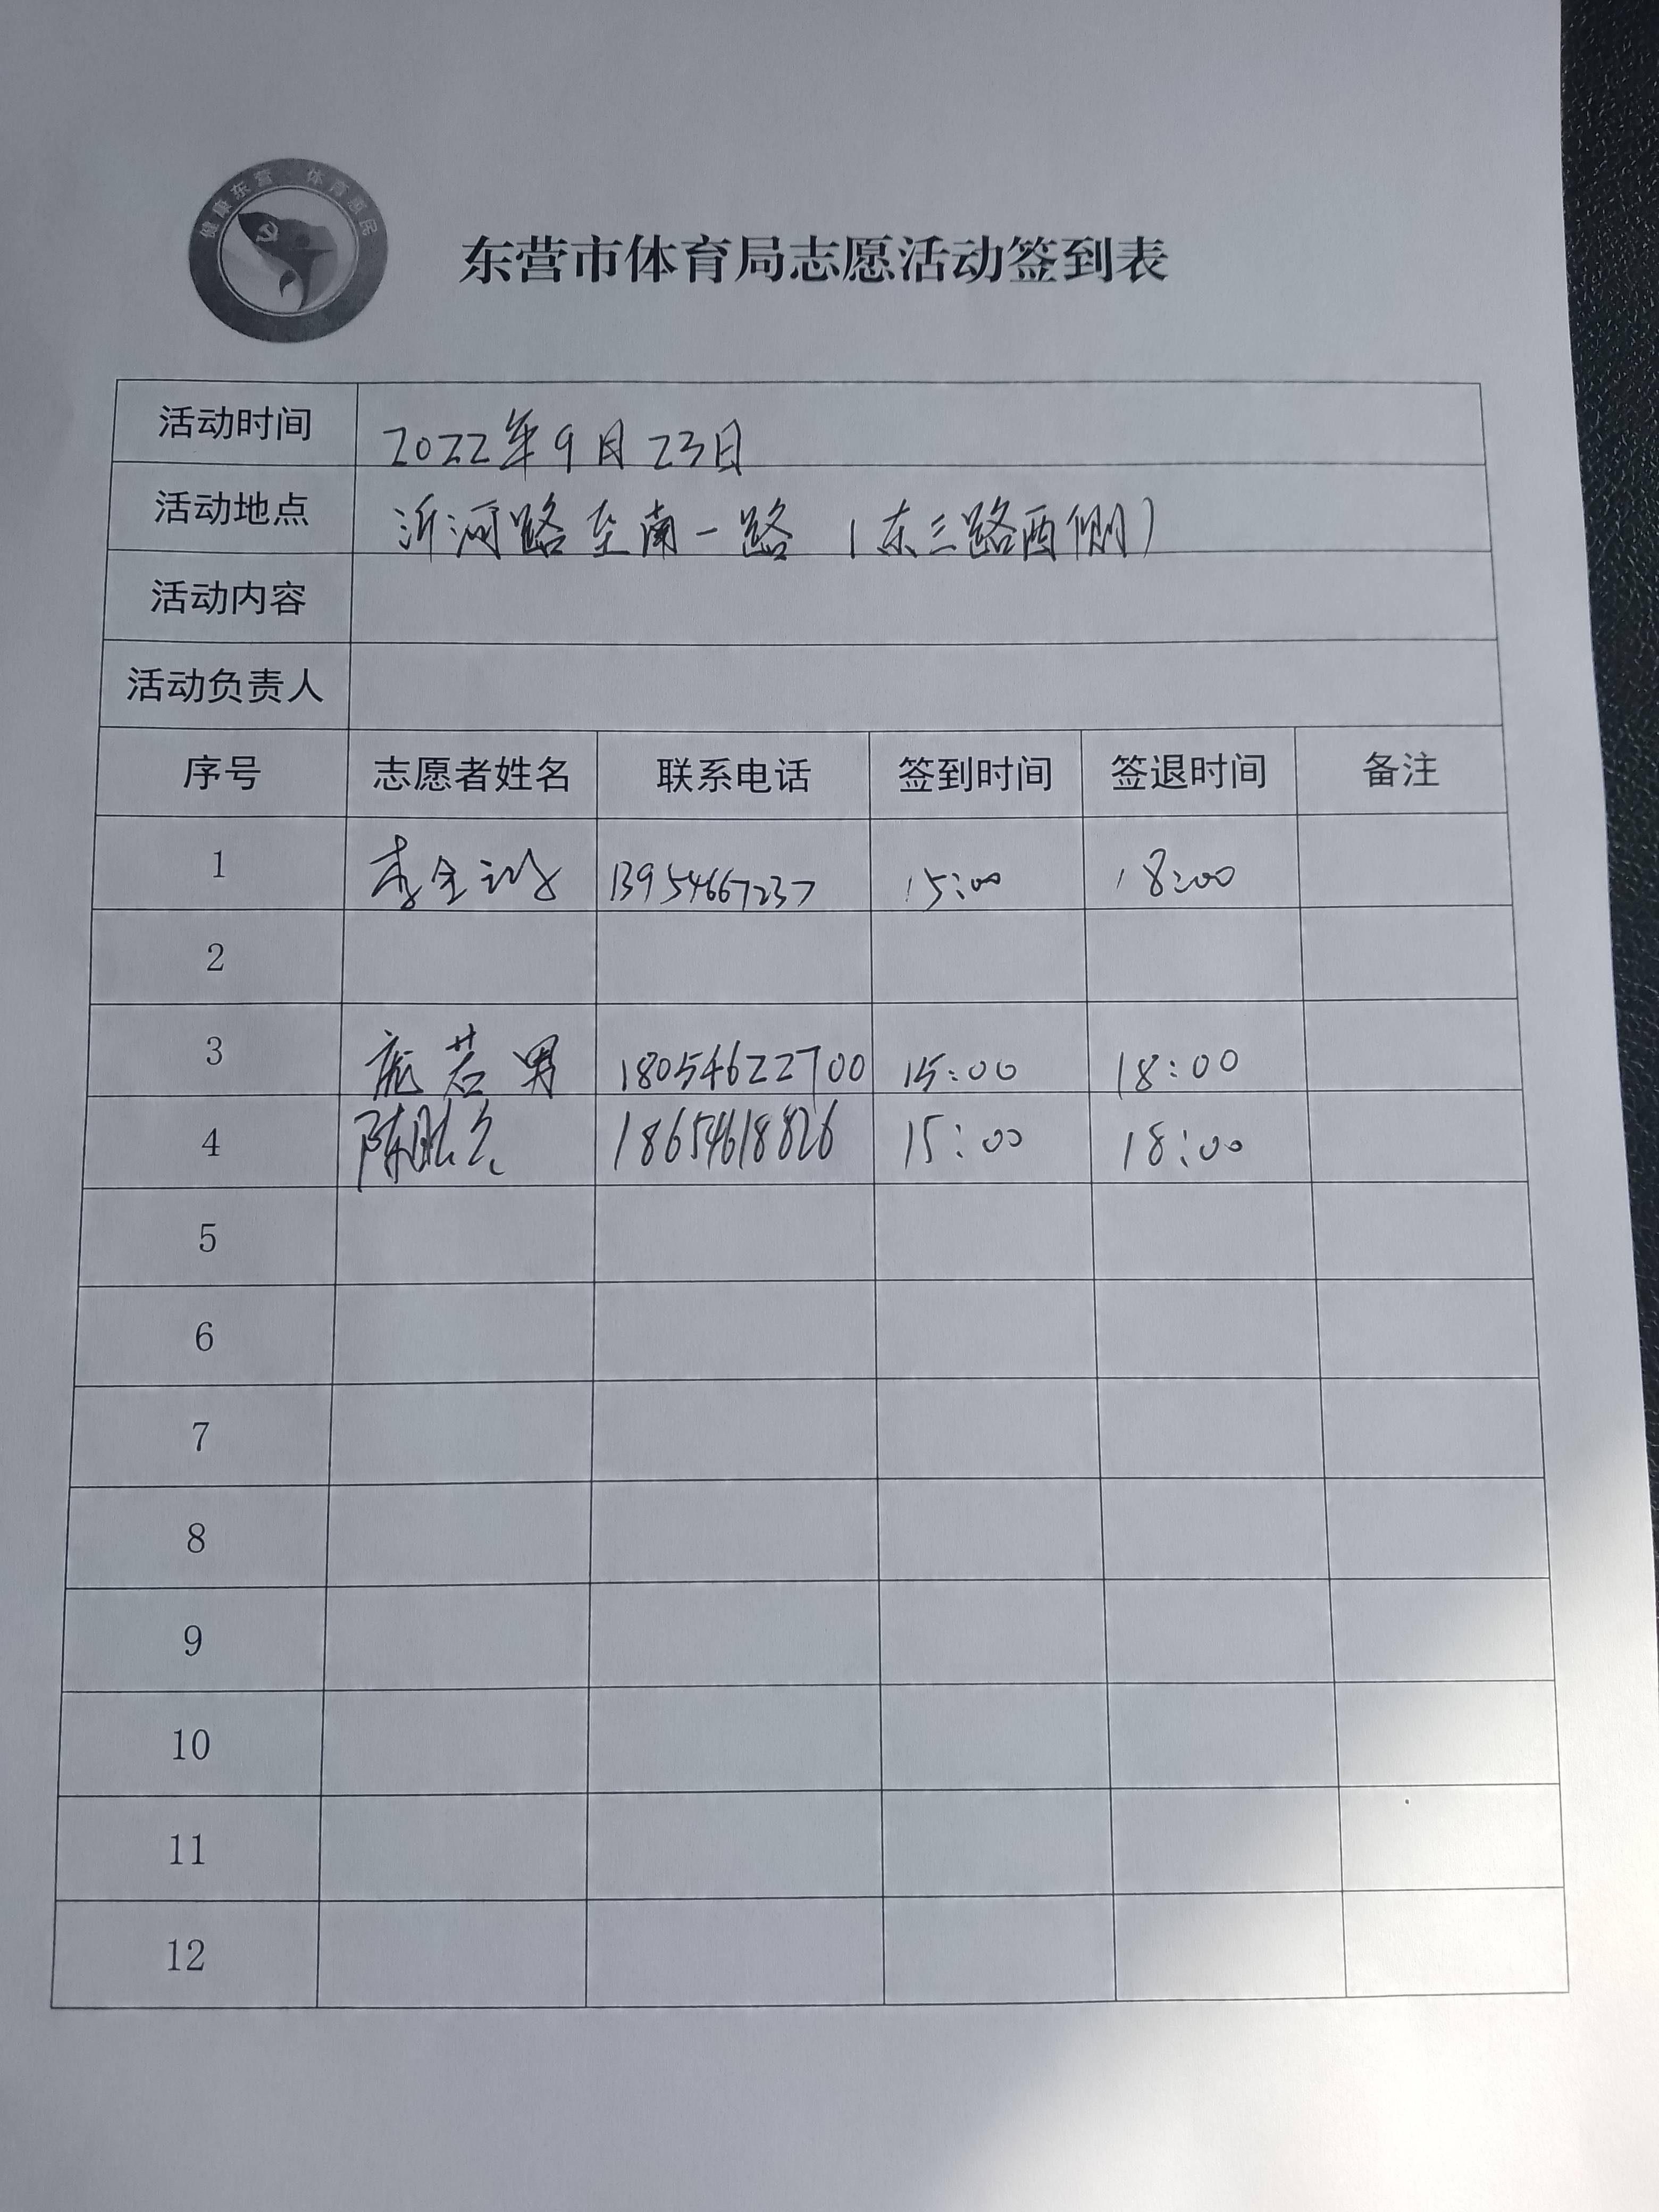 健康东营 体育惠民
东营市体育局志愿活动签到表
活动时间 2022年9月23日
活动地点 沂河路至南一路（东三路西侧）
活动内容
活动负责人
序号 志愿者姓名 联系电话 签到时间 签退时间 备注
1 13954667237 15:00 18:00
2
3 庞若男 18054622700 15:00 18:00
4 陈 18654618826 15:00 18:00
5
6
7
8
9
10
11
12